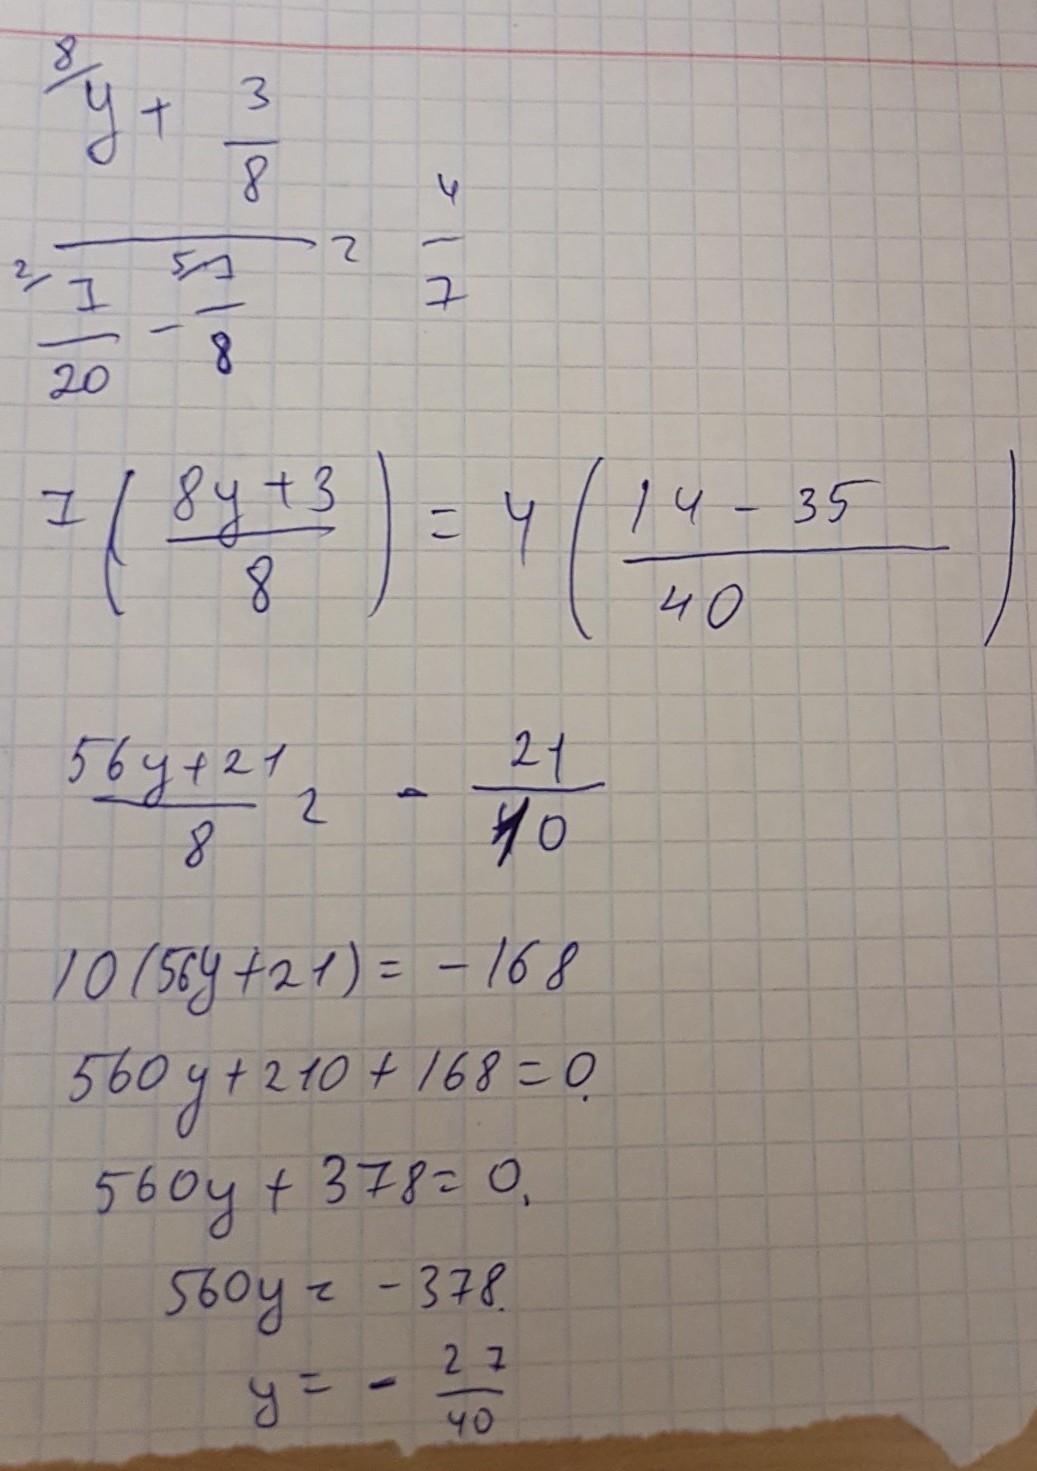 8/ y + 3/8
2/ 7/20 - 5/ 7/8 = 4/7
7 ( (8y+3)/8 ) = 4 ( (14 - 35)/40 )
(56y+21)/8 = - 21/10
10(56y+21) = -168
560y+210+168=0.
560y + 378 = 0.
560y = -378.
y = - 27/40